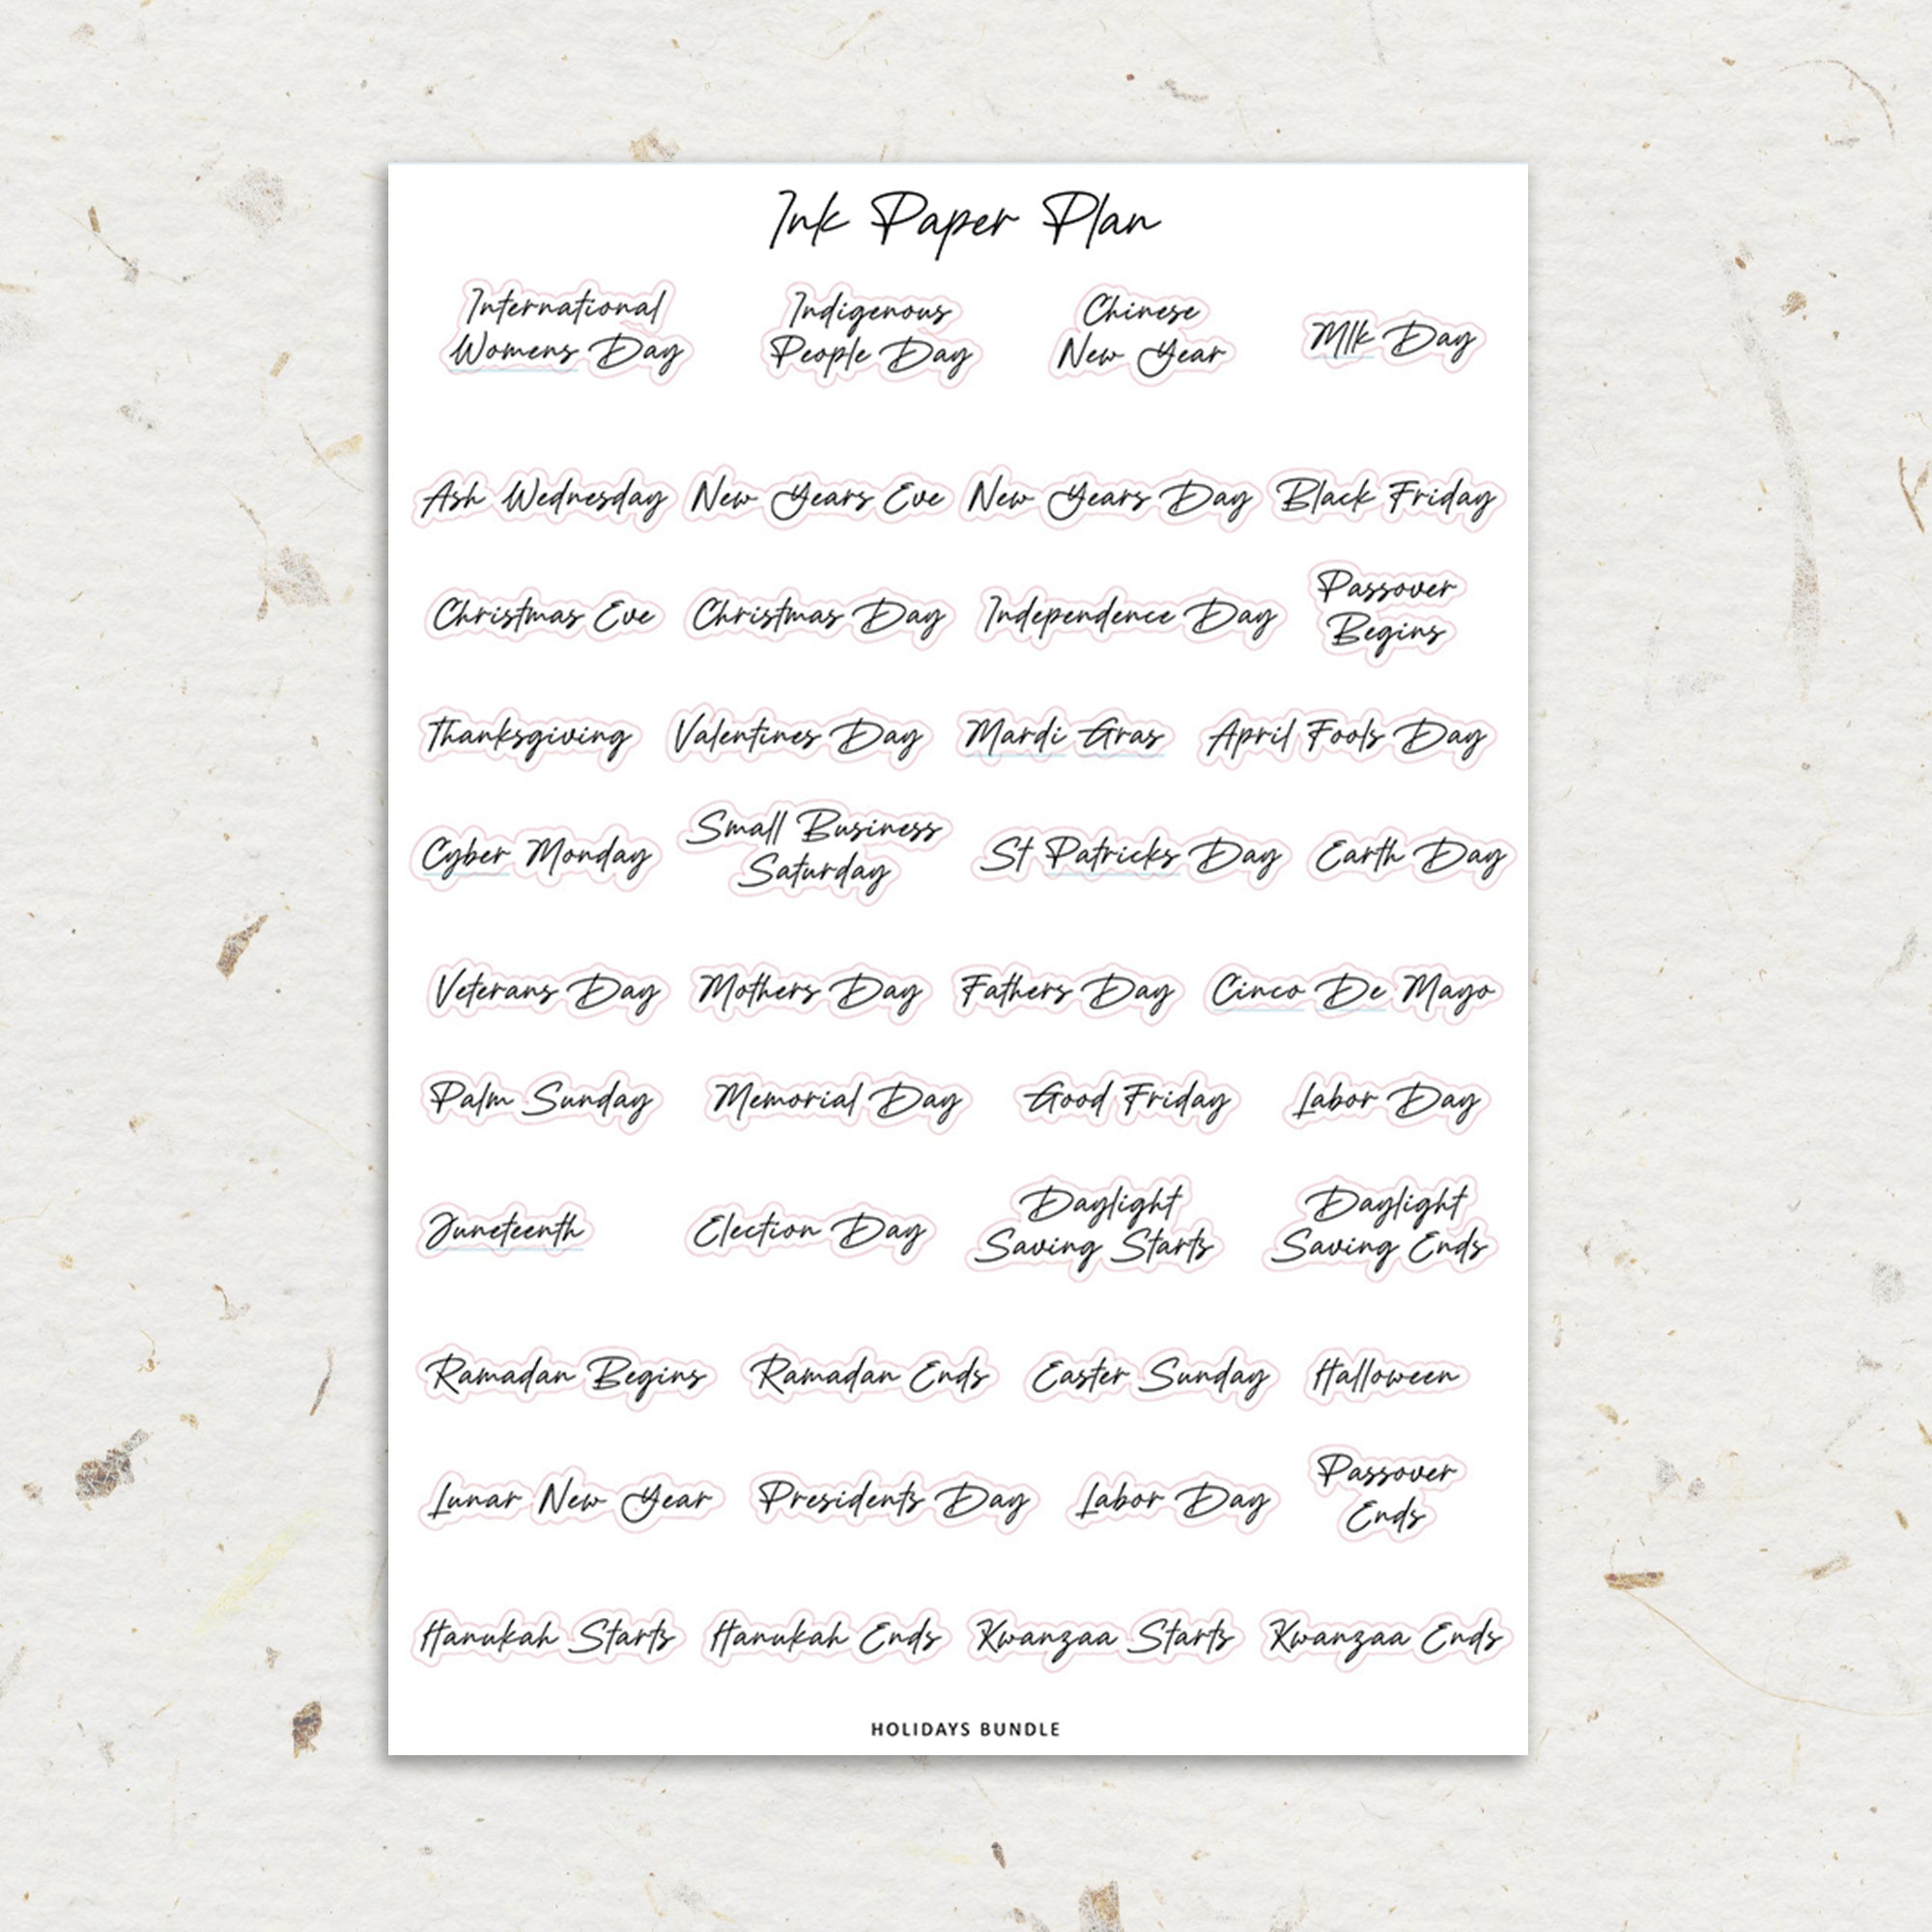 Ink Paper Plan
International
Womens Day
Indigenous
People Day
Chinese
New Year
Mlk Day
Ash Wednesday
New Years Eve
New Years Day
Black Friday
Christmas Eve
Christmas Day
Independence Day
Passover
Begins
Thanksgiving
Valentines Day
Mardi Gras
April Fools Day
Cyber Monday
Small Business
Saturday
St Patricks Day
Earth Day
Veterans Day
Mothers Day
Fathers Day
Cinco De Mayo
Palm Sunday
Memorial Day
Good Friday
Labor Day
Juneteenth
Election Day
Daylight
Saving Starts
Daylight
Saving Ends
Ramadan Begins
Ramadan Ends
Easter Sunday
Halloween
Lunar New Year
Presidents Day
Labor Day
Passover
Ends
Hanukah Starts
Hanukah Ends
Kwanzaa Starts
Kwanzaa Ends
HOLIDAYS BUNDLE